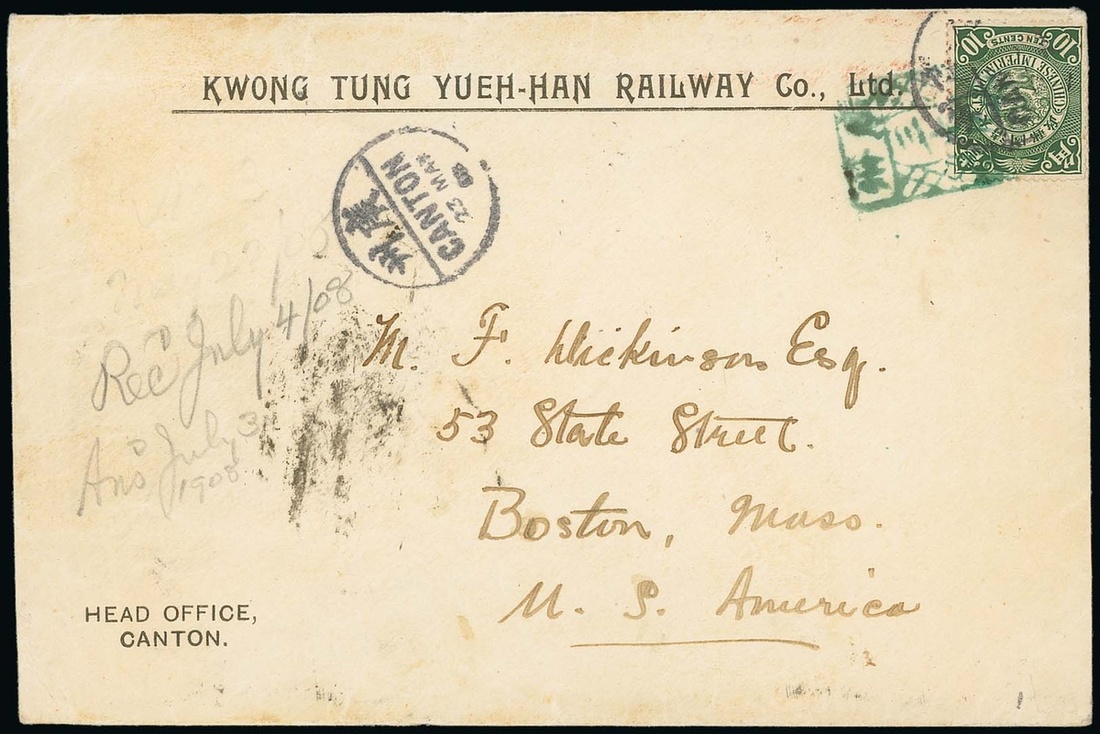 KWONG TUNG YUEH-HAN RAILWAY Co., Ltd.
10 TEN CENTS 10
CHINESE IMPERIAL
廣州
CANTON
23 MAY
08
Rec'd July 4/08
Ans'd July 3
1908
M. F. Dickinson Esq.
53 State Street.
Boston, Mass.
U. S. America
HEAD OFFICE,
CANTON.
1